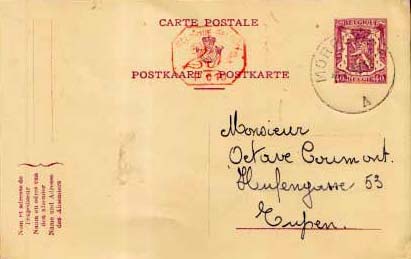 CARTE POSTALE
POSTKAART POSTKARTE
BELGIQUE
MORE
A
Monsieur
Octave Coumont.
Hufengasse 53
Eupen.
Nom et adresse de
l'expéditeur
Naam en adres van
den afzender
Name und Adresse
des Absenders